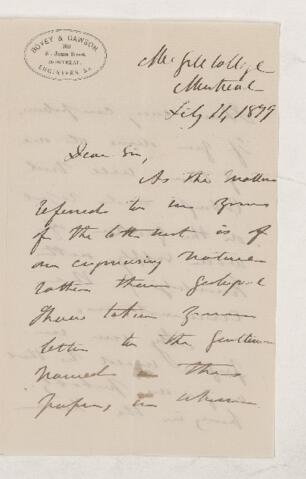 BOVEY & DAWSON
St. James Street,
MONTREAL.
ENGINEERS &c.
McGill College
Montreal
July 11, 1879
Dear Sir,
As the matter
referred to in yours
of the 10th inst is of
an engineering nature
rather than geological
I have taken your
letter to the gentlemen
named in this
paper, in whom